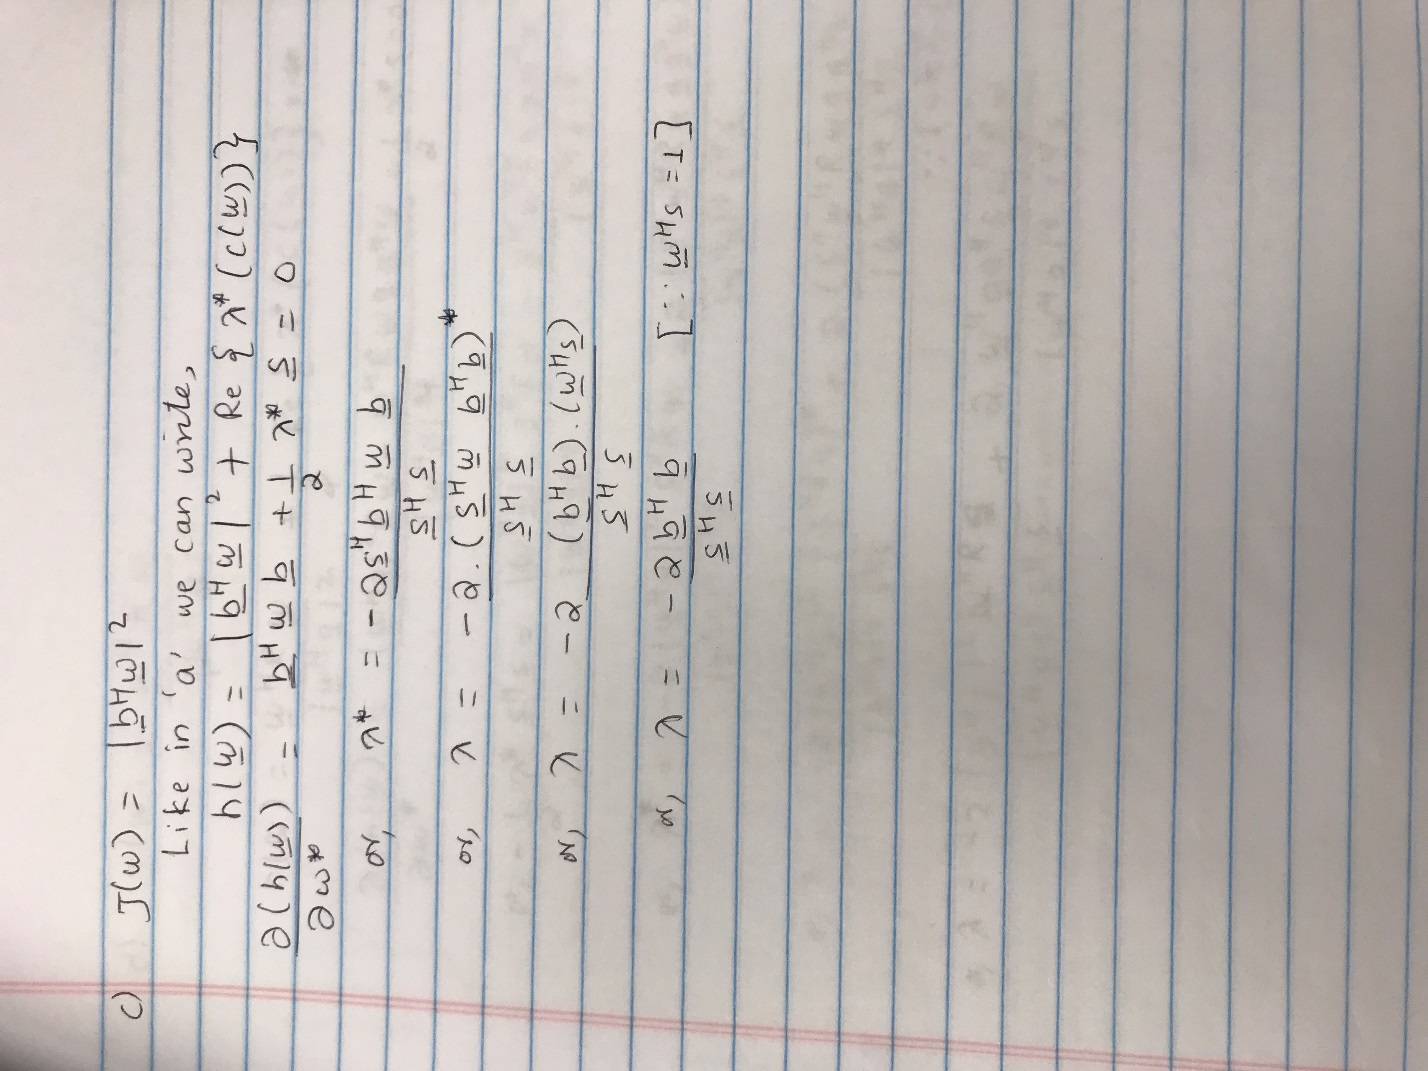 c) J(w) = |b̲ᴴw̲|²
Like in 'a' we can write,
h(w̲) = |b̲ᴴw̲|² + Re { λ* (c(w̲)) }
∂(h(w̲))/∂w* = b̲ᴴ w̲ b̲ + 1/2 λ* s̲ = 0
or, λ* = -2 s̲ᴴ b̲ᴴ w̲ b̲ / s̲ᴴ s̲
or, λ = -2 · (s̲ᴴ w̲ b̲ᴴ b̲)* / s̲ᴴ s̲
or, λ = -2 (b̲ᴴ b̲) · (w̲ᴴ s̲) / s̲ᴴ s̲
or, λ = -2 b̲ᴴ b̲ / s̲ᴴ s̲ [∵ w̲ᴴ s = 1]